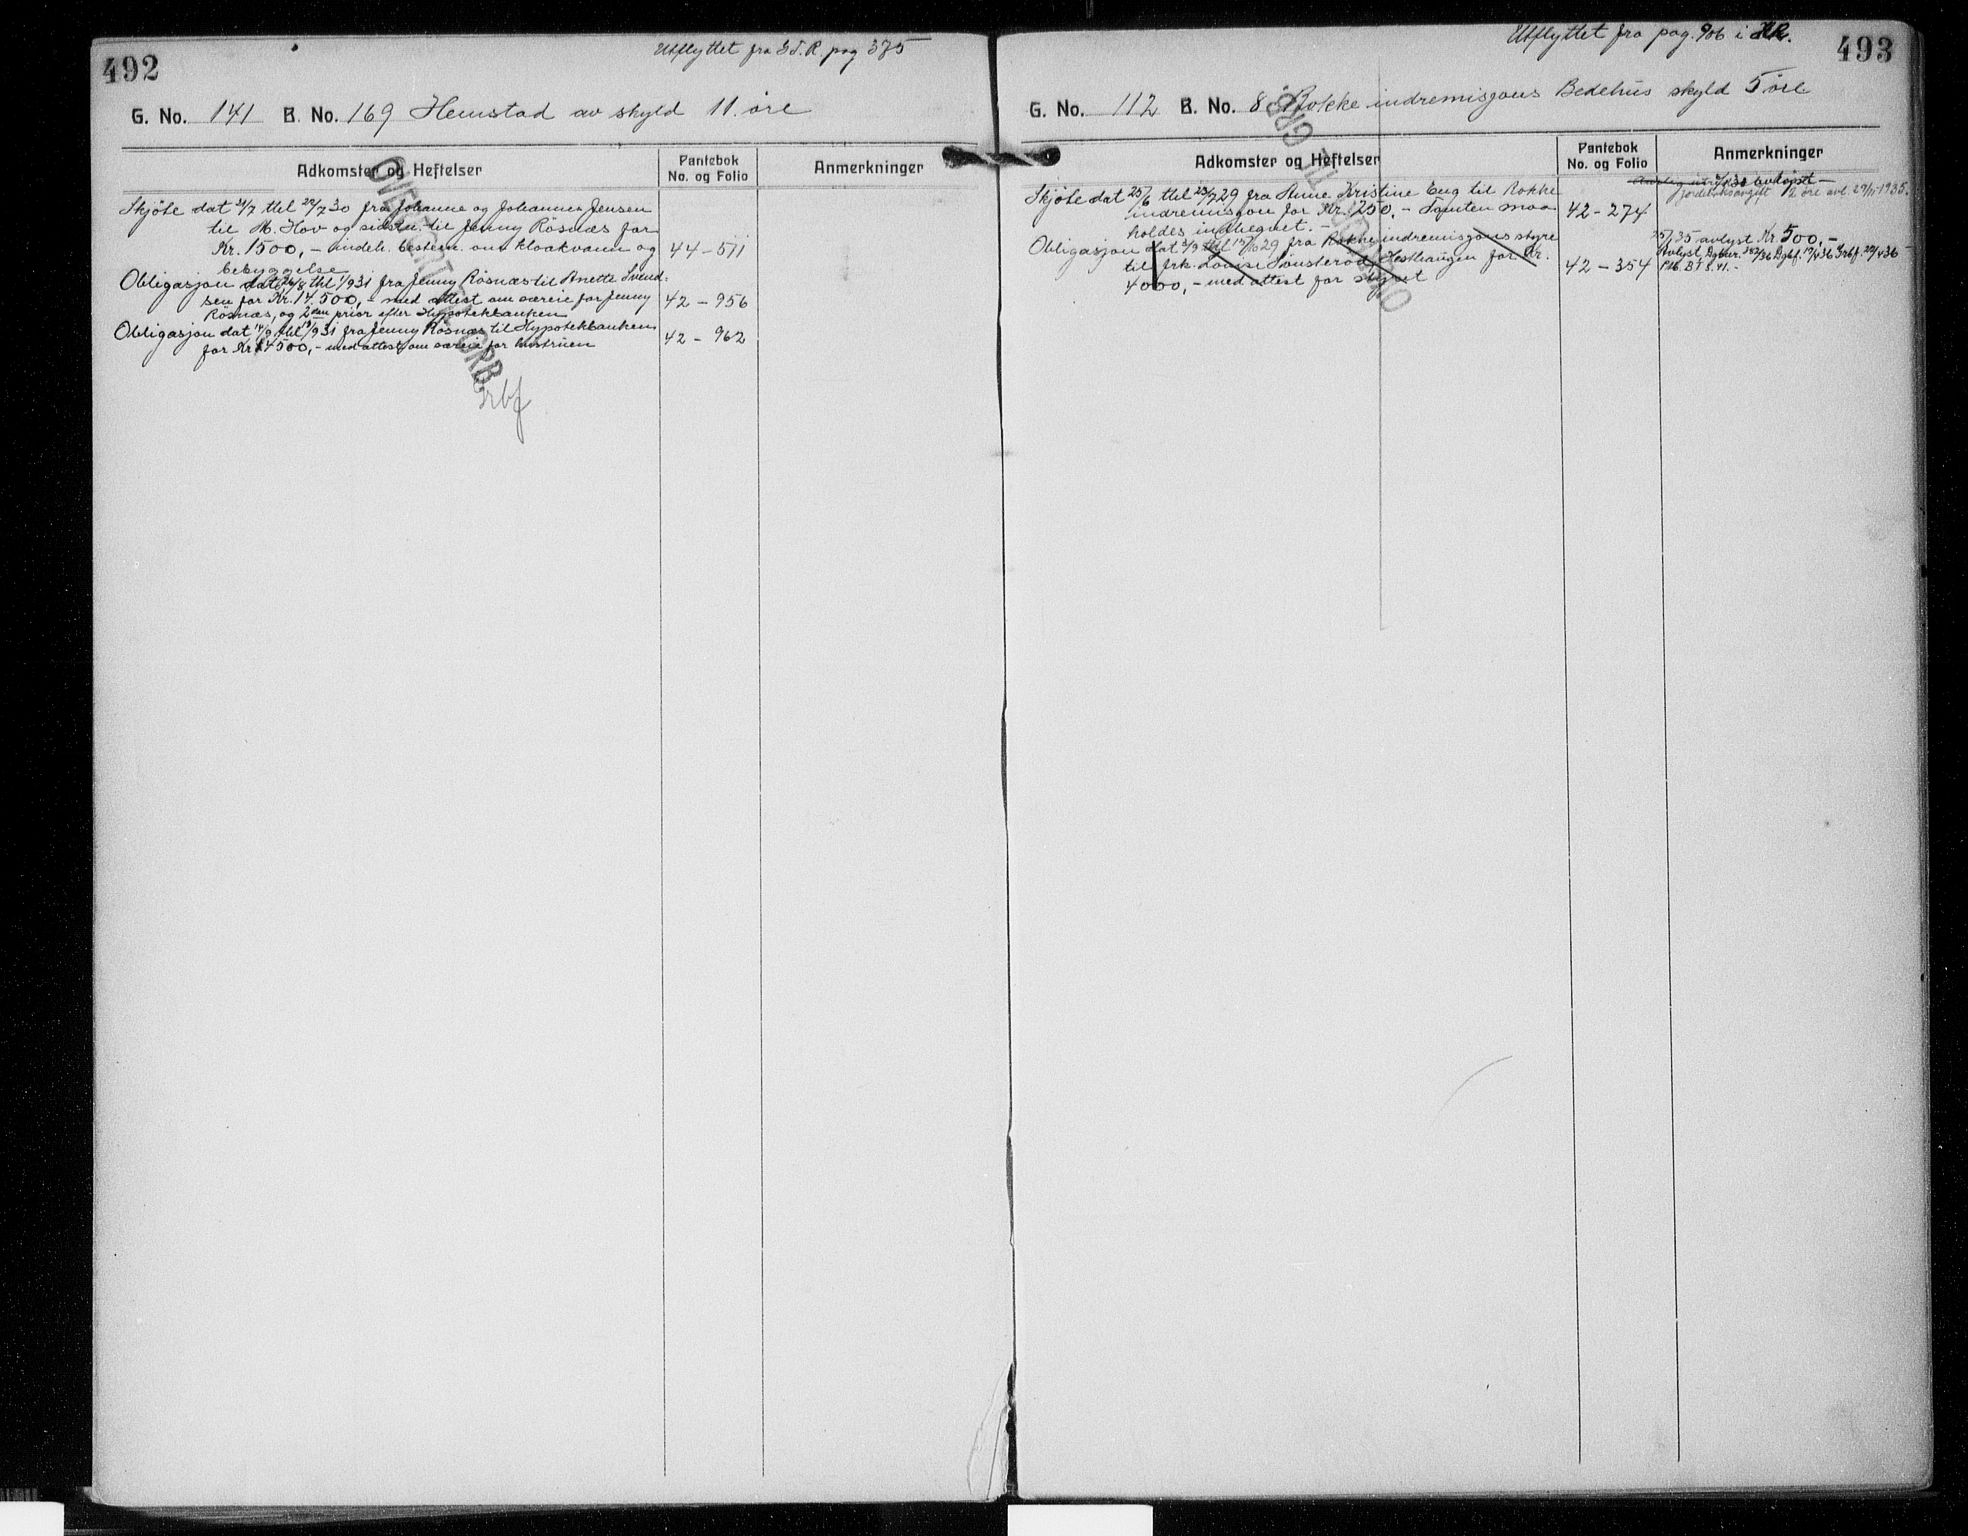 492
Utflyttet fra G.T.R. pag 375
G. No. 141 B. No. 169 Hemstad av skyld 11 øre
Adkomster og Heftelser
Pantebok
No. og Folio
Anmerkninger
OVERFØRT TIL GRB.
Skjöte dat 21/7 thl 22/7 30 fra Johanne og Johannes Jensen
til M. Hov og siden til Jenny Rösnæs for
Kr. 1500,- indeh. bestem. om kloakvann og 44-511
bebyggelse
Obligasjon dat 26/8 thl 1/9 31 fra Jenny Rösnæs til Anette Svend-
sen for Kr. 14,500,- med attest om særeie for Jenny 42-956
Rösnæs, og 2den prior efter Hypotekbanken
Obligasjon dat 14/9 thl 19/9 31 fra Jenny Rösnæs til Hypotekbanken
for Kr 14500,- med attest om særeie for hustruen 42-962
Grbf
493
Utflyttet fra pag. 906 i
G. No. 112 B. No. 8 Rokke indremisjons Bedehus skyld 5 öre
Adkomster og Heftelser
Pantebok
No. og Folio
Anmerkninger
OVERFØRT TIL GRB.
Skjöte dat 25/6 thl 23/7 29 fra Anne Kristine Eng til Rokke
indremisjon for Kr. 250,- Tomten maa 42-274
holdes indhegnet.-
avlöst
1/2 öre avl 29/11-1935.
Obligasjon dat 2/9 thl 17/10 29 fra Rokke indremisjons styre
til frk. Lovise Tönsteröd, Hesthaugen for Kr. 42-354
4000,- med attest for styret
25/1 35 avlyst Kr. 500,-
Avlyst Dgbnr. 382/36 Dgbf. 17/4 36 Grbf. 22/4 36
Ptb. B1 s. 41.-